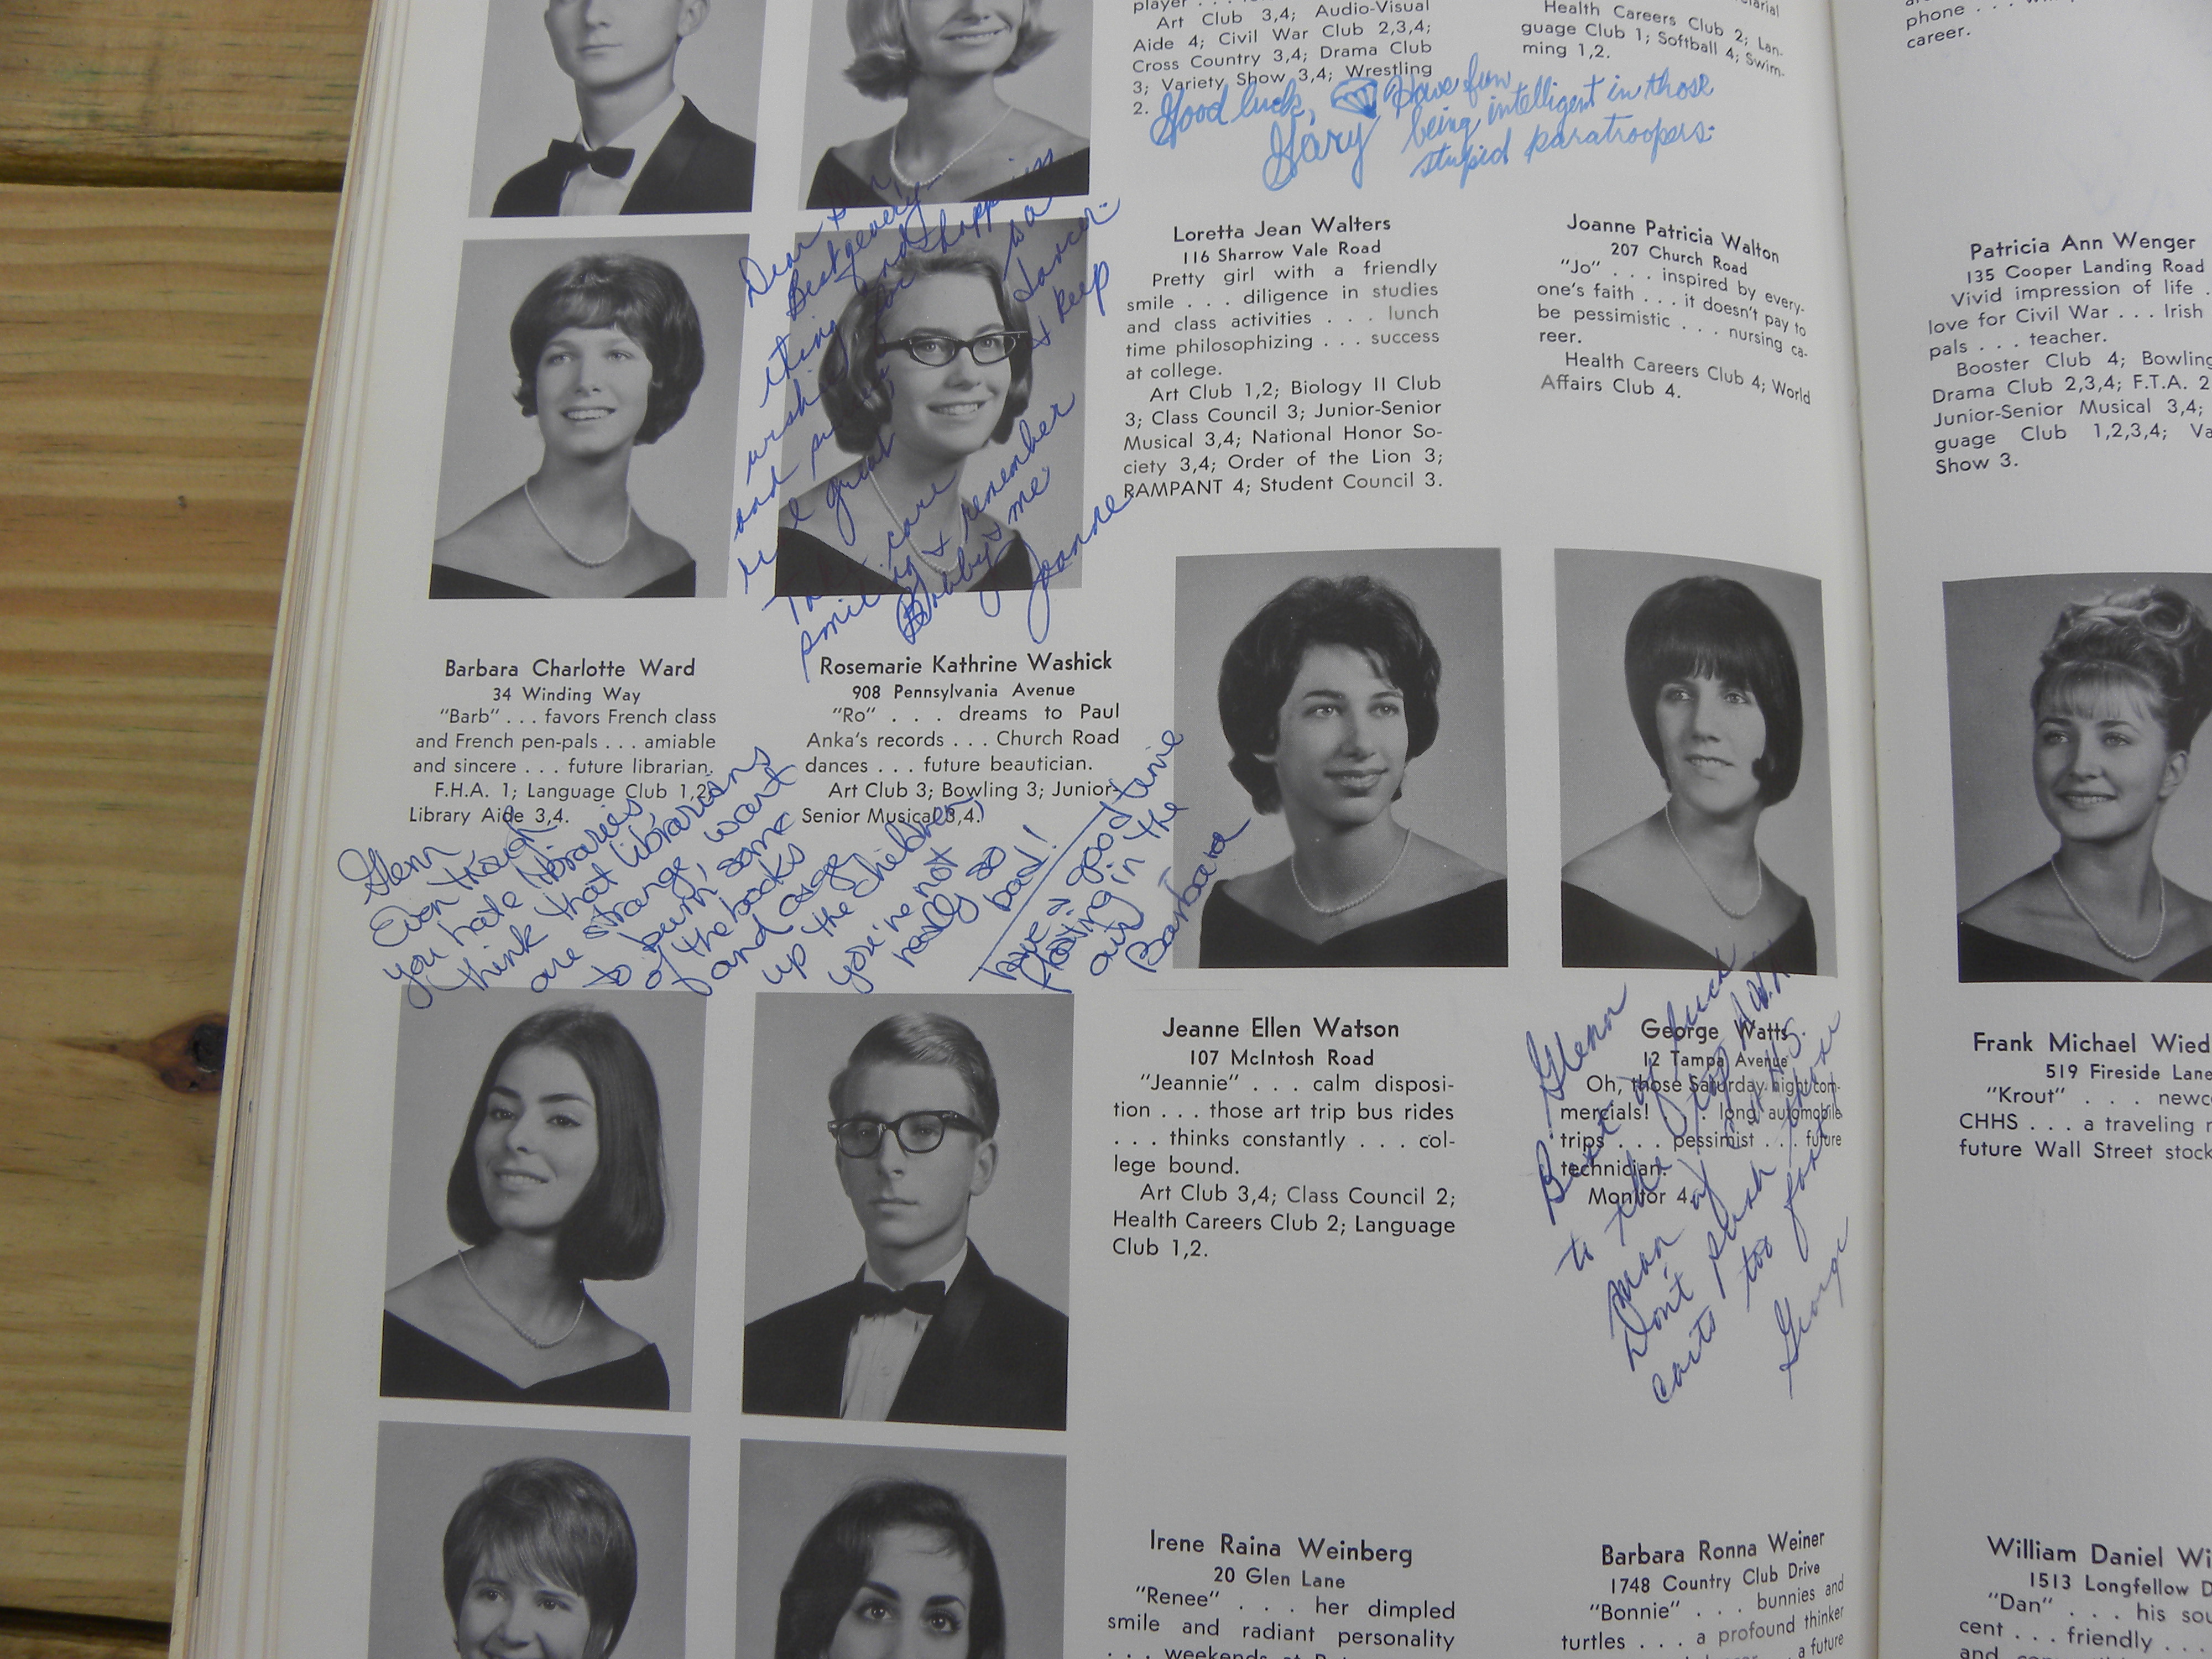 player . . .
Art Club 3,4; Audio-Visual
Aide 4; Civil War Club 2,3,4;
Cross Country 3,4; Drama Club
3; Variety Show 3,4; Wrestling
2.
Health Careers Club 2; Lan-
guage Club 1; Softball 4; Swim-
ming 1,2.
Good luck,
Gary
Have fun
being intelligent in those
stupid paratroopers.
Loretta Jean Walters
116 Sharrow Vale Road
Pretty girl with a friendly
smile . . . diligence in studies
and class activities . . . lunch
time philosophizing . . . success
at college.
Art Club 1,2; Biology II Club
3; Class Council 3; Junior-Senior
Musical 3,4; National Honor So-
ciety 3,4; Order of the Lion 3;
RAMPANT 4; Student Council 3.
Joanne Patricia Walton
207 Church Road
"Jo" . . . inspired by every-
one's faith . . . it doesn't pay to
be pessimistic . . . nursing ca-
reer.
Health Careers Club 4; World
Affairs Club 4.
Dear
Best
and happiness
to a
and
great
dancer.
Take care
& keep
smiling & remember
Bobby & me
Joanne
Barbara Charlotte Ward
34 Winding Way
"Barb" . . . favors French class
and French pen-pals . . . amiable
and sincere . . . future librarian.
F.H.A. 1; Language Club 1,2;
Library Aide 3,4.
Rosemarie Kathrine Washick
908 Pennsylvania Avenue
"Ro" . . . dreams to Paul
Anka's records . . . Church Road
dances . . . future beautician.
Art Club 3; Bowling 3; Junior-
Senior Musical 3,4.
Glenn
Even though
you hate libraries,
think that librarians
are strange, want
to burn some
of the books
and cage
up the children,
you're not
really so
bad!
Have a good time
floating in the
air
Barbara
Jeanne Ellen Watson
107 McIntosh Road
"Jeannie" . . . calm disposi-
tion . . . those art trip bus rides
. . . thinks constantly . . . col-
lege bound.
Art Club 3,4; Class Council 2;
Health Careers Club 2; Language
Club 1,2.
George Watts
12 Tampa Avenue
Oh, those Saturday night com-
mercials! . . . long automobile
trips . . . pessimist . . . future
technician.
Monitor 4.
Glenn
Best of luck
to the top
man of
Don't push those
carts too fast
George
Irene Raina Weinberg
20 Glen Lane
"Renee" . . . her dimpled
smile and radiant personality
. . . weekends at
Barbara Ronna Weiner
1748 Country Club Drive
"Bonnie" . . . bunnies and
turtles . . . a profound thinker
a future
phone . . .
career.
Patricia Ann Wenger
135 Cooper Landing Road
Vivid impression of life .
love for Civil War . . . Irish
pals . . . teacher.
Booster Club 4; Bowling
Drama Club 2,3,4; F.T.A. 2
Junior-Senior Musical 3,4;
guage Club 1,2,3,4; Va
Show 3.
Frank Michael Wied
519 Fireside Lane
"Krout" . . . newc
CHHS . . . a traveling
future Wall Street stock
William Daniel Wi
1513 Longfellow D
"Dan" . . . his sou
cent . . . friendly . . .
and